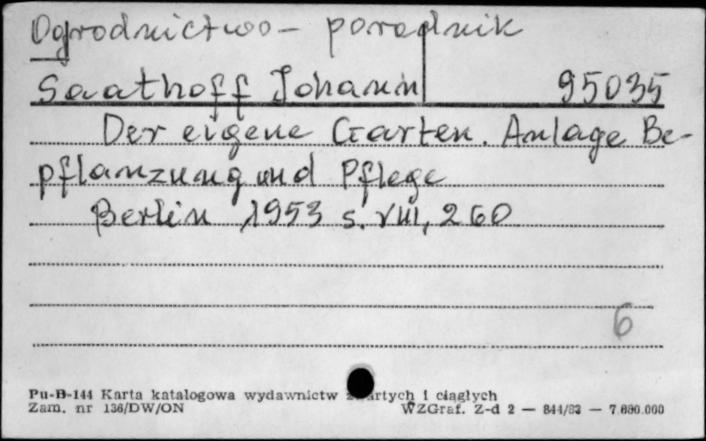 Ogrodnictwo – poradnik
Saathoff Johann 95035
Der eigene Garten. Anlage Be-
pflanzung und Pflege
Berlin 1953 s. VIII, 260
6
Pu-B-144 Karta katalogowa wydawnictw zwartych i ciągłych
Zam. nr 136/DW/ON WZGraf. Z-d 2 — 844/83 — 7.000.000